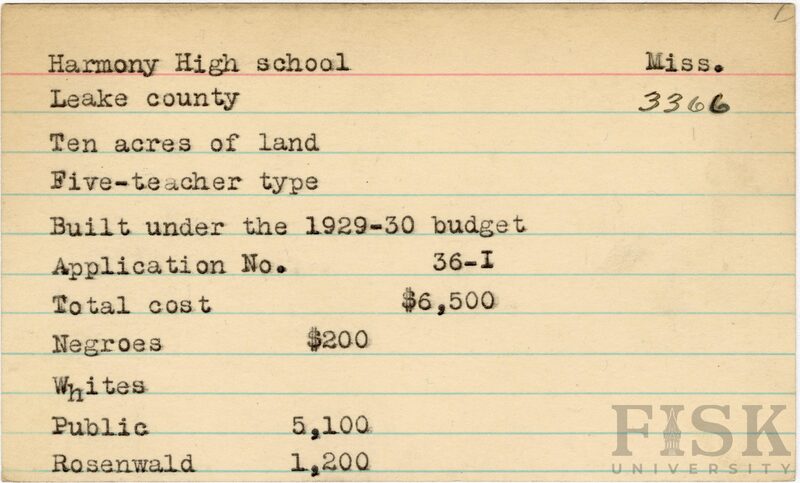 Harmony High school Miss.
Leake county 3366
Ten acres of land
Five-teacher type
Built under the 1929-30 budget
Application No. 36-I
Total cost $6,500
Negroes $200
Whites
Public 5,100
Rosenwald 1,200
FISK
UNIVERSITY